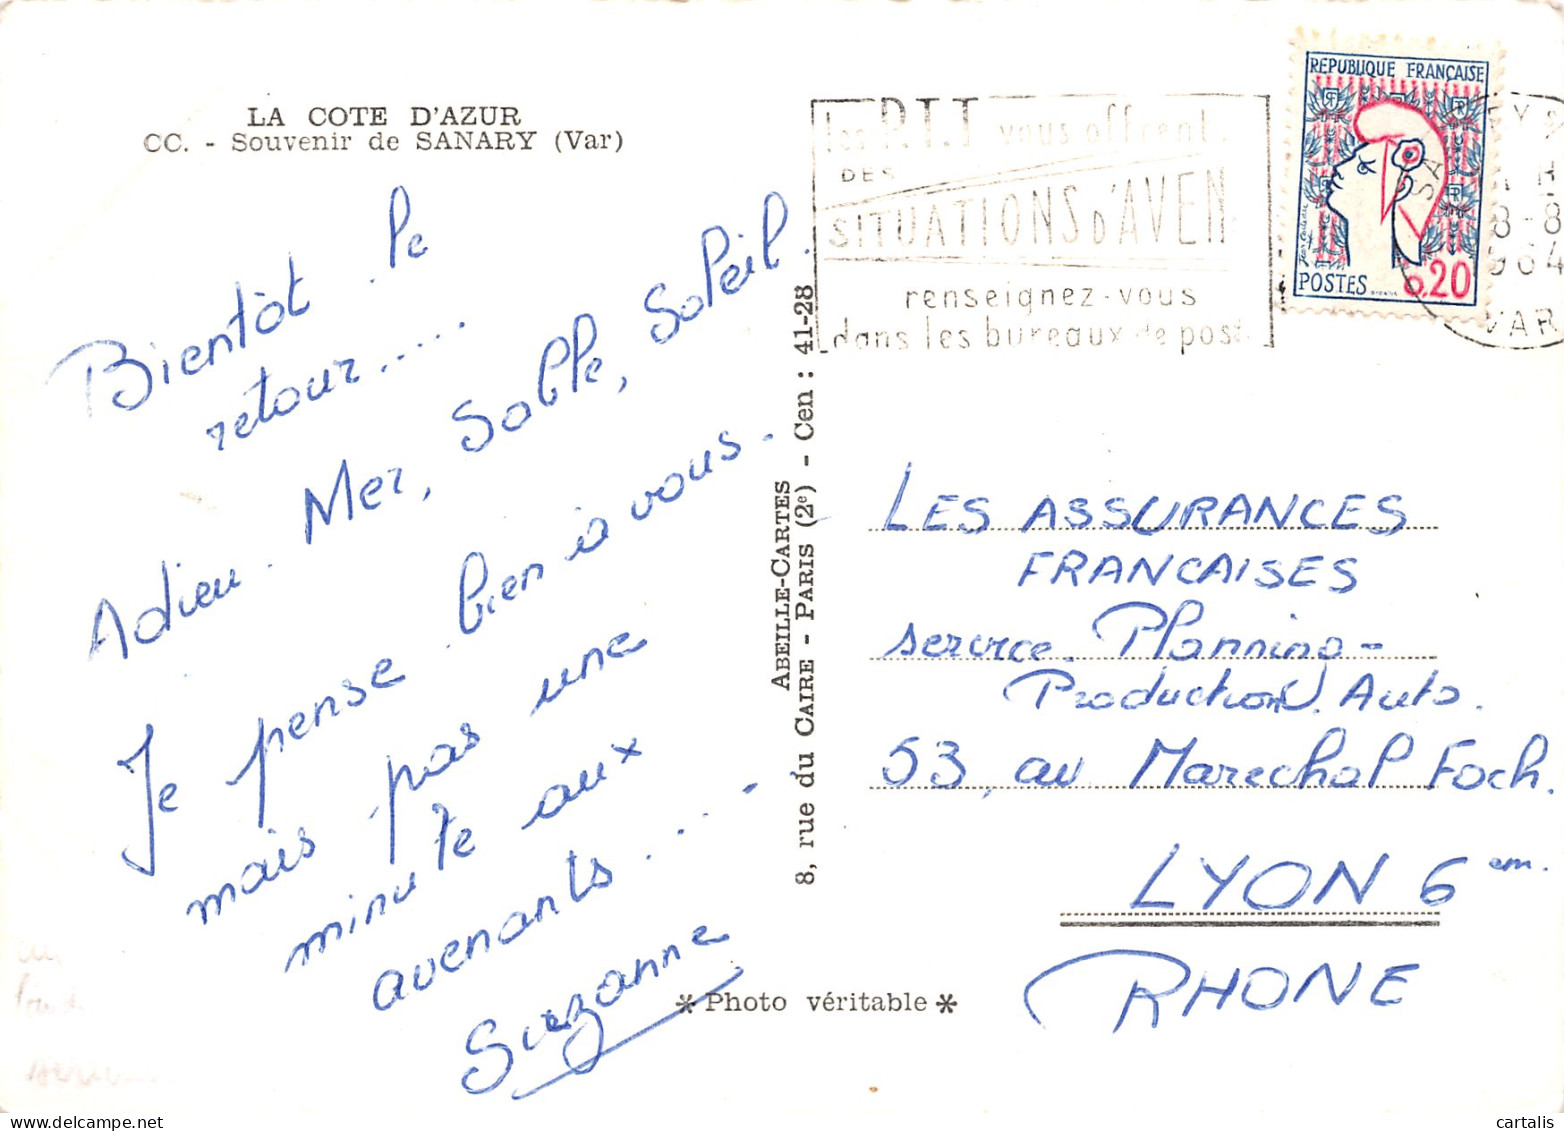 LA COTE D'AZUR
CC. - Souvenir de SANARY (Var)
Bientôt le
retour....
Adieu. Mer, Sable, Soleil.
Je pense bien à vous.
mais pas une
minute aux
avenants....
Suzanne
ABEILLE-CARTES
8, rue du CAIRE - PARIS (2e) - Cen : 41-28
* Photo véritable *
les P.T.T vous offrent
DES
SITUATIONS D'AVEN
renseignez-vous
dans les bureaux de poste
REPUBLIQUE FRANÇAISE
POSTES 0,20
8-8
1964
VAR
LES ASSURANCES
FRANCAISES
service Planning-
Production. Auto.
53, av Marechal Foch.
LYON 6 em.
RHONE
cartalis